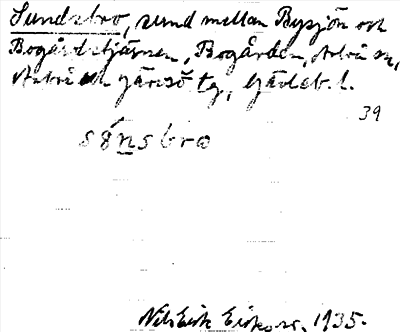 Sundsbro, sund mellan Bysjön och
Bogårdstjärnen, Bogården, Arbrå sn,
Arbrå och Järvsö tg, Gävleb. l.
39
sö́nsbro
Nils Erik Eriksson, 1935.